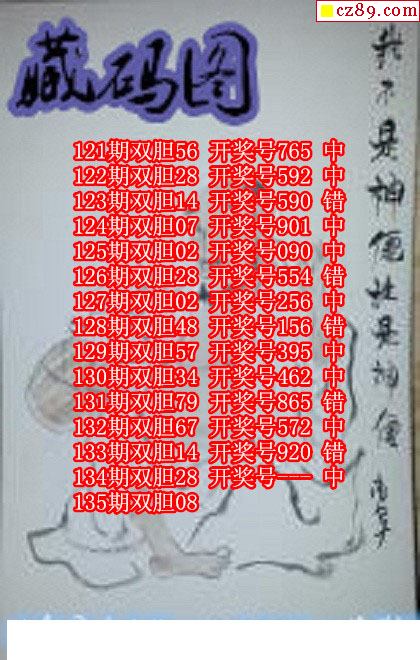 cz89.com
藏码图
121期双胆56 开奖号765 中
122期双胆28 开奖号592 中
123期双胆14 开奖号590 错
124期双胆07 开奖号901 中
125期双胆02 开奖号090 中
126期双胆28 开奖号554 错
127期双胆02 开奖号256 中
128期双胆48 开奖号156 错
129期双胆57 开奖号395 中
130期双胆34 开奖号462 中
131期双胆79 开奖号865 错
132期双胆67 开奖号572 中
133期双胆14 开奖号920 错
134期双胆28 开奖号--- 中
135期双胆08
我不是神仙
是神仙